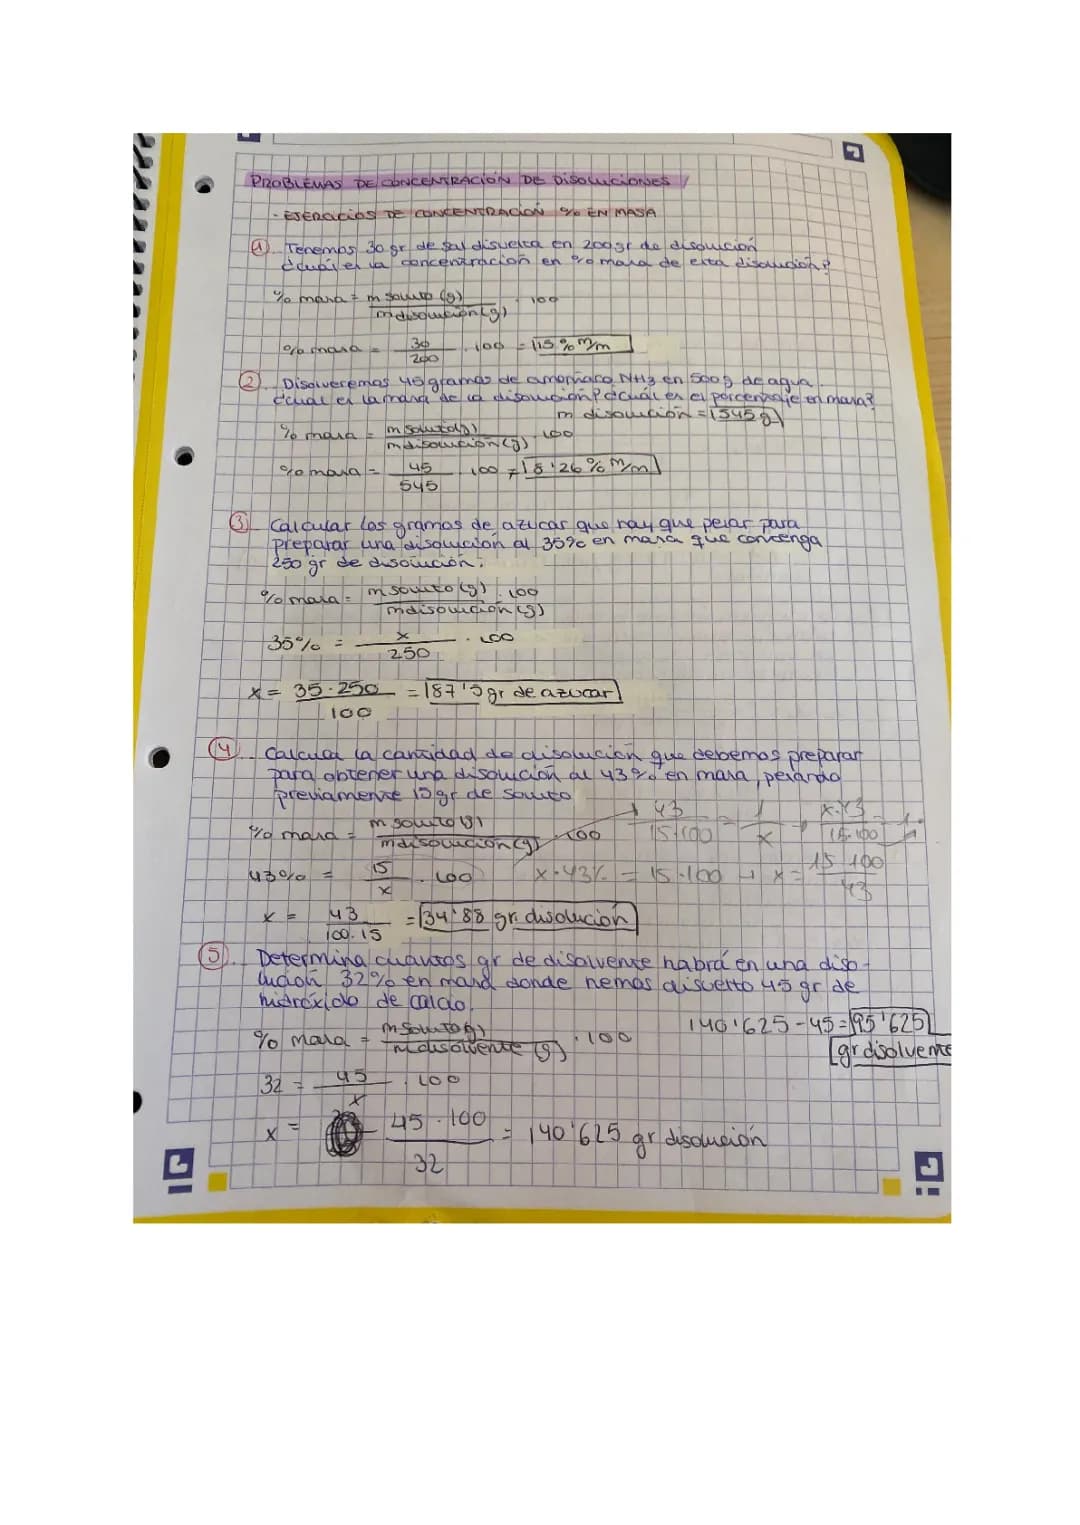 PROBLEMAS DE CONCENTRACIÓN DE DISOLUCIONES
- EJERCICIOS DE CONCENTRACIÓN % EN MASA
1. Tenemos 30 gr de sal disuelta en 200gr de disolución
¿cuál es la concentración en % masa de esta disolución?
% masa = m soluto (g) / m disolución (g) · 100
% masa = 30 / 200 · 100 = 15 % m/m
2. Disolveremos 45 gramos de amoniaco NH3 en 500g de agua.
¿cuál es la masa de la disolución? ¿cuál es el porcentaje en masa?
m disolución = 545 g
% masa = m soluto (g) / m disolución (g) · 100
% masa = 45 / 545 · 100 = 8'26 % m/m
3. Calcular los gramos de azucar que hay que pesar para
preparar una disolución al 35% en masa que contenga
250 gr de disolución.
% masa = m soluto (g) / m disolución (g) · 100
35% = x / 250 · 100
x = 35 · 250 / 100 = 87'5 gr de azucar
4. Calcula la cantidad de disolución que debemos preparar
para obtener una disolución al 43% en masa, pesando
previamente 15 gr de soluto
% masa = m soluto (g) / m disolución (g) · 100 → 43 / 15·100 = 1 / x → x·43 / 15·100 = 1
43% = 15 / x · 100 x·43% = 15·100 → x = 15·100 / 43
x = 43 / 100·15 = 34'88 gr disolución
5. Determina cuantos gr de disolvente habrá en una diso-
lución 32% en masa donde hemos disuelto 45 gr de
hidróxido de calcio.
% masa = m soluto (g) / m disolvente (g) · 100
140'625 - 45 = 95'625
gr disolvente
32 = 45 / x · 100
x = 45 · 100 / 32 = 140'625 gr disolución